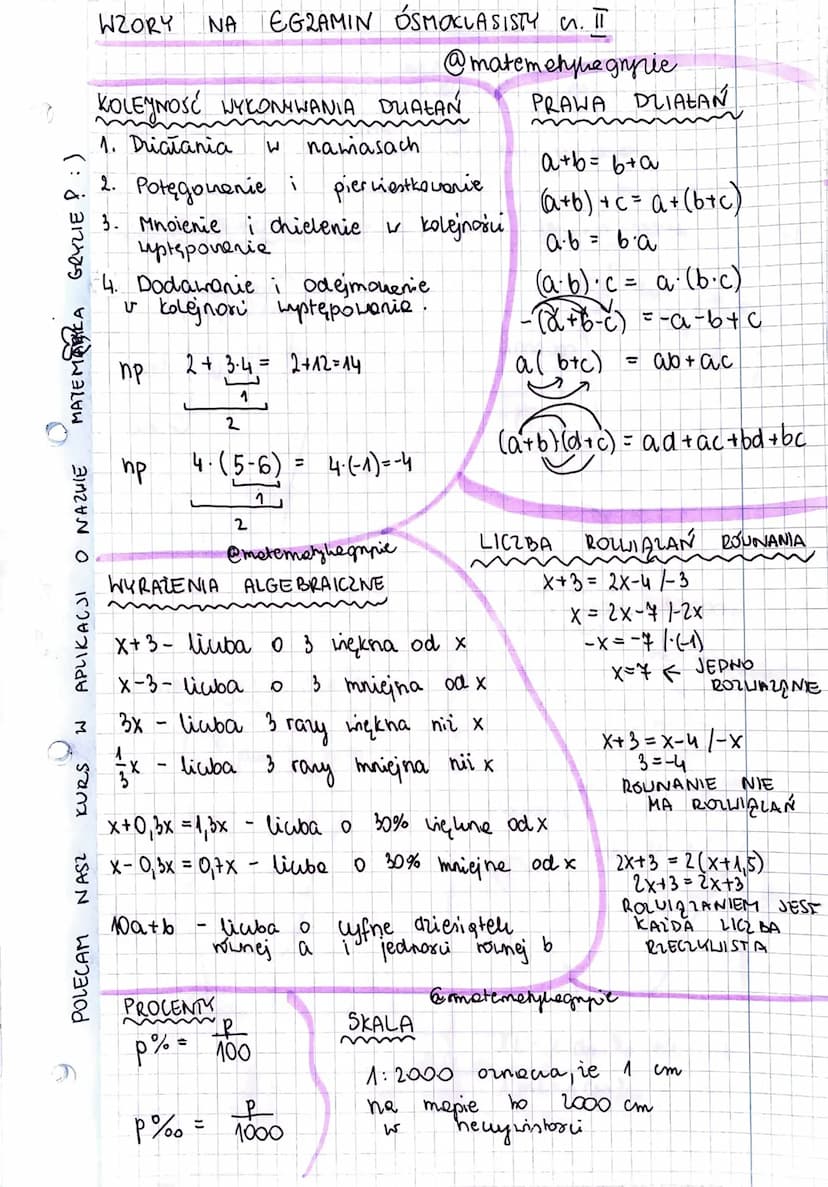 WZORY NA EGZAMIN ÓSMOKLASISTY cz. II
@matematykagryzie
KOLEJNOŚĆ WYKONYWANIA DZIAŁAŃ
1. Działania w nawiasach
2. Potęgowanie i pierwiastkowanie
3. Mnożenie i dzielenie w kolejności
występowania
4. Dodawanie i odejmowanie
w kolejnosci występowania.
np 2 + 3·4 = 2+12=14
1
2
np 4·(5-6) = 4·(-1)=-4
1
2
PRAWA DZIAŁAŃ
a+b = b+a
(a+b)+c = a+(b+c)
a·b = b·a
(a·b)·c = a·(b·c)
-(a+b-c) = -a-b+c
a(b+c) = ab+ac
(a+b)(d+c) = ad+ac+bd+bc
@matematykagryzie
WYRAŻENIA ALGEBRAICZNE
x+3 - liczba o 3 większa od x
x-3 - liczba o 3 mniejsza od x
3x - liczba 3 razy większa niż x
1/3x - liczba 3 razy mniejsza niż x
x+0,3x=1,3x - liczba o 30% większa od x
x-0,3x=0,7x - liczba o 30% mniejsza od x
10a+b - liczba o cyfrze dziesiątek
równej a i jedności równej b
LICZBA ROZWIĄZAŃ RÓWNANIA
x+3 = 2x-4 /-3
x = 2x-7 /-2x
-x = -7 /·(-1)
x=7 ← JEDNO
ROZWIAZANIE
x+3 = x-4 /-x
3=-4
RÓWNANIE NIE
MA ROZWIĄZAŃ
2x+3 = 2(x+1,5)
2x+3 = 2x+3
ROZWIĄZANIEM JEST
KAŻDA LICZBA
RZECZYWISTA
PROCENTY
p% = p/100
p‰ = p/1000
@matematykagryzie
SKALA
1:2000 oznacza, że 1 cm
na mapie to 2000 cm
w rzeczywistości
POLECAM NASZ KURS W APLIKACJI O NAZWIE MATEMATYKA GRYZIE? :)